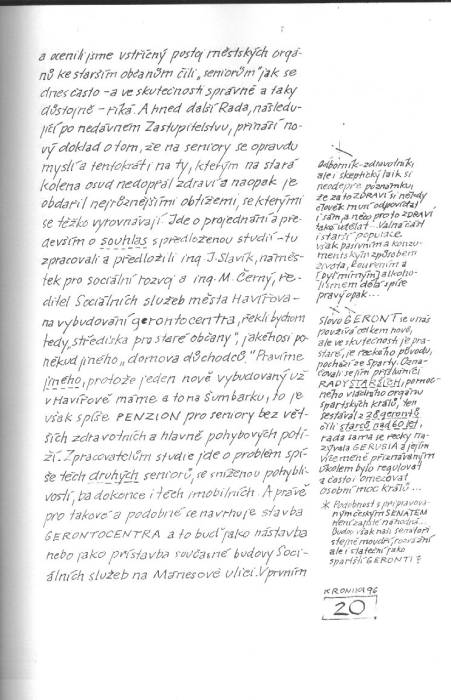 a ocenili jsme vstřícný postoj městských orgá-
nů ke starším občanům čili „seniorům" jak se
dnes často - a ve skutečnosti správně a taky
důstojně - říká. A hned další Rada, následu-
jící po nedávném Zastupitelstvu, přináší no-
vý doklad o tom, že na seniory se opravdu
myslí a tentokráti na ty, kterým na stará
kolena osud nedopřál zdraví a naopak je
obdařil nejrůznějšími obtížemi, se kterými
se těžko vyrovnávají. Jde o projednání a pře-
devším o souhlas s předloženou studií - tu
zpracovali a předložili ing. J. Slavík, náměs-
tek pro sociální rozvoj a ing. M. Černý, ře-
ditel Sociálních služeb města Havířova -
na vybudování gerontocentra, řekli bychom
tedy „střediska pro staré občany", jakéhosi po-
někud jiného „domova důchodců." Pravíme
jiného, protože jeden nově vybudovaný už
v Havířově máme a to na Šumbarku, to je
však spíše PENZION pro seniory bez vět-
ších zdravotních a hlavně pohybových potí-
ží. Zpracovatelům studie jde o problém spí-
še těch druhých seniorů, se sníženou pohybli-
vostí, ba dokonce i těch imobilních. A právě
pro takové a podobné se navrhuje stavba
GERONTOCENTRA a to buď jako nástavba
nebo jako přístavba současné budovy Soci-
álních služeb na Mánesově ulici. V prvním
Odborník - zdravotník,
ale i skeptický laik si
neodepře poznámku,
že za to ZDRAVÍ si někdy
člověk musí odpovídat
i sám, a něco pro to ZDRAVÍ
také udělat... Valná část
i starší populace
však pasivním a konzu-
mentským způsobem
života, kouřením a
(ne)mírným alkoho-
lismem dělá spíše
pravý opak...
Slovo GERONT je u nás
používá celkem nově,
ale ve skutečnosti je pra-
staré, je řeckého původu,
pochází ze Sparty. Ozna-
čovali se jím příslušníci
RADY STARŠÍCH, pomoc-
ného vládního orgánu
spartských králů, ten
sestával z 28 gerontů
čili starců nad 60 let,
rada sama se řecky na-
zývala GERUSIA a jejím
více méně přiznávaným
úkolem bylo regulovat
a často i omezovat
osobní moc králů...
* Podobnost s připravova-
ným českým SENÁTEM
není zajisté náhodná...
Budou však naši senátoři
stejně moudří, rozvážní
ale i stateční jako
spartští GERONTI?
KRONIKA 96
20